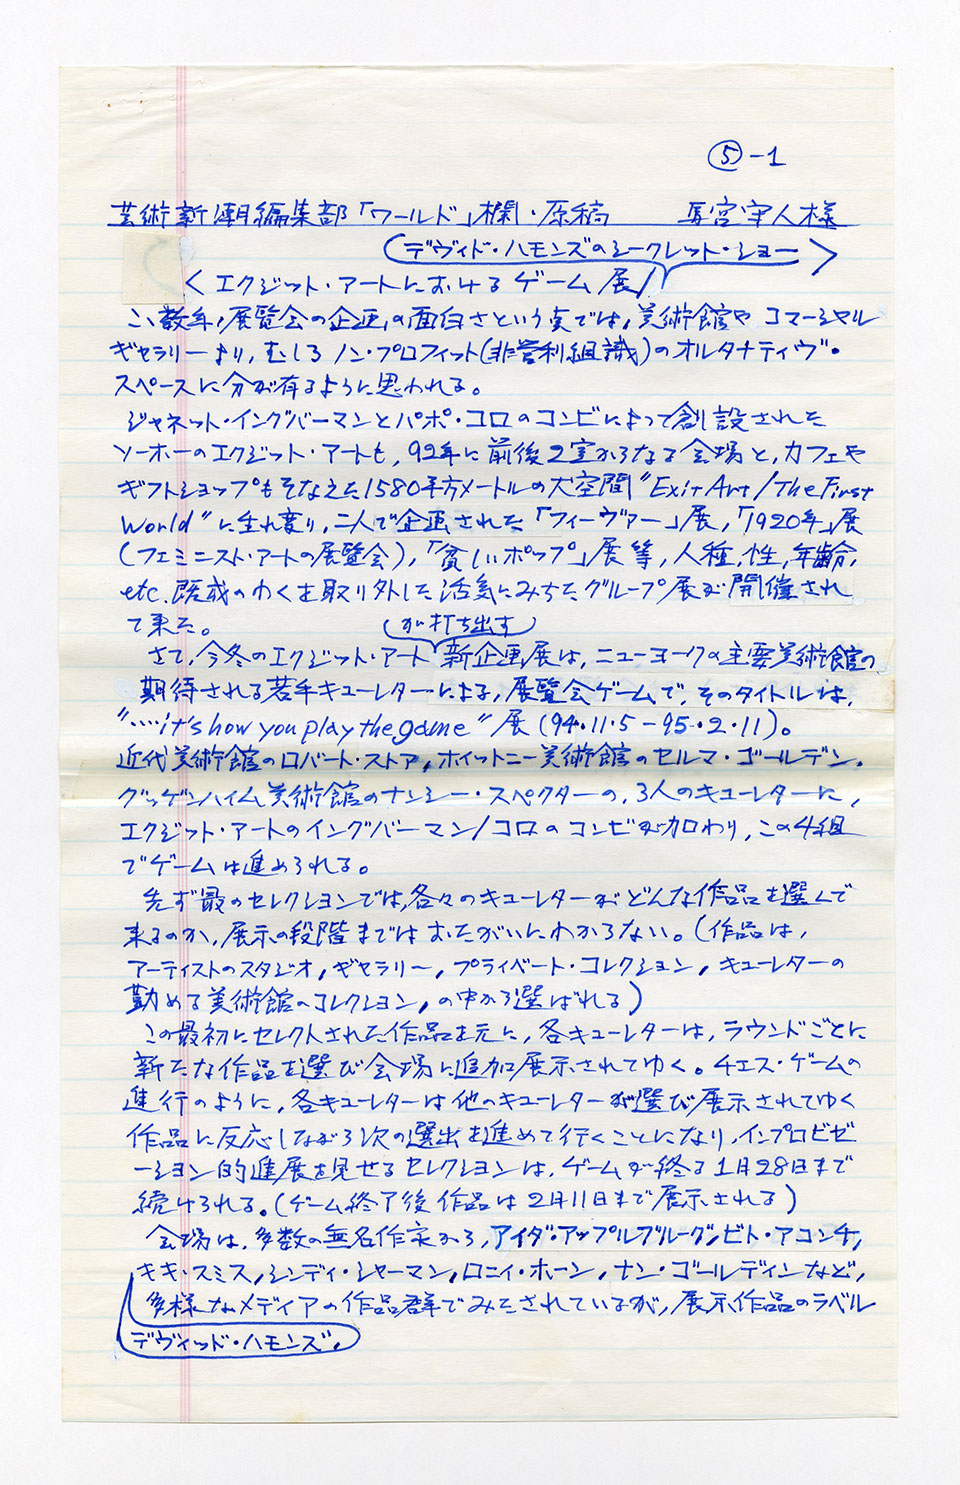 ⑤-1
芸術新潮編集部「ワールド」欄・原稿 馬宮守人様
デヴィド・ハモンズのシークレット・ショー〉
〈エクジット・アートにおけるゲーム展/
ここ数年,展覧会の企画の面白さという点では,美術館やコマーシャル
ギャラリーより,むしろノン・プロフィット(非営利組識)のオルタナティヴ・
スペースに分が有るように思われる。
ジャネット・イングバーマンとパポ・コロのコンビによって創設された
ソーホーのエクジット・アートも,92年に前後2室からなる会場と,カフェや
ギフトショップもそなえた1580平方メートルの大空間"Exit Art/The First
World"に生れ変り,二人で企画された「フィーヴァー」展,「1920年」展
(フェミニスト・アートの展覧会),「貧しいポップ」展等,人種,性,年齢,
etc.既成のわくを取り外した活気にみちたグループ展が開催され
て来た。
が打ち出す
さて,今冬のエクジット・アート新企画展は,ニューヨークの主要美術館の
期待される若手キューレターによる,展覧会ゲームで,そのタイトルは,
"‥‥it's how you play the game"展(94・11・5-95・2・11)。
近代美術館のロバート・ストア,ホイットニー美術館のセルマ・ゴールデン,
グッゲンハイム美術館のナンシー・スペクターの,3人のキューレターに,
エクジット・アートのイングバーマン/コロのコンビが加わり,この4組
でゲームは進められる。
先ず最のセレクションでは,各々のキューレターがどんな作品を選んで
来るのか,展示の段階まではおたがいにわからない。(作品は,
アーティストのスタジオ,ギャラリー,プライベート・コレクション,キューレターの
勤める美術館のコレクション,の中から選ばれる)
この最初にセレクトされた作品を元に,各キューレターは,ラウンドごとに
新たな作品を選び会場に追加展示されてゆく。チエス・ゲームの
進行のように,各キューレターは他のキューレターが選び展示されてゆく
作品に反応しながら次の選出を進めて行くことになり,インプロビゼ
ーション的進展を見せるセレクションは,ゲームが終る1月28日まで
続けられる。(ゲーム終了後作品は2月11日まで展示される)
会場は,多数の無名作家から,アイダ・アップルブルーグ,ビト・アコンチ,
キキ・スミス,シンディ・シャーマン,ロニィ・ホーン,ナン・ゴールディンなど,
多様なメディアの作品群でみたされているが,展示作品のラベル
デヴィッド・ハモンズ,